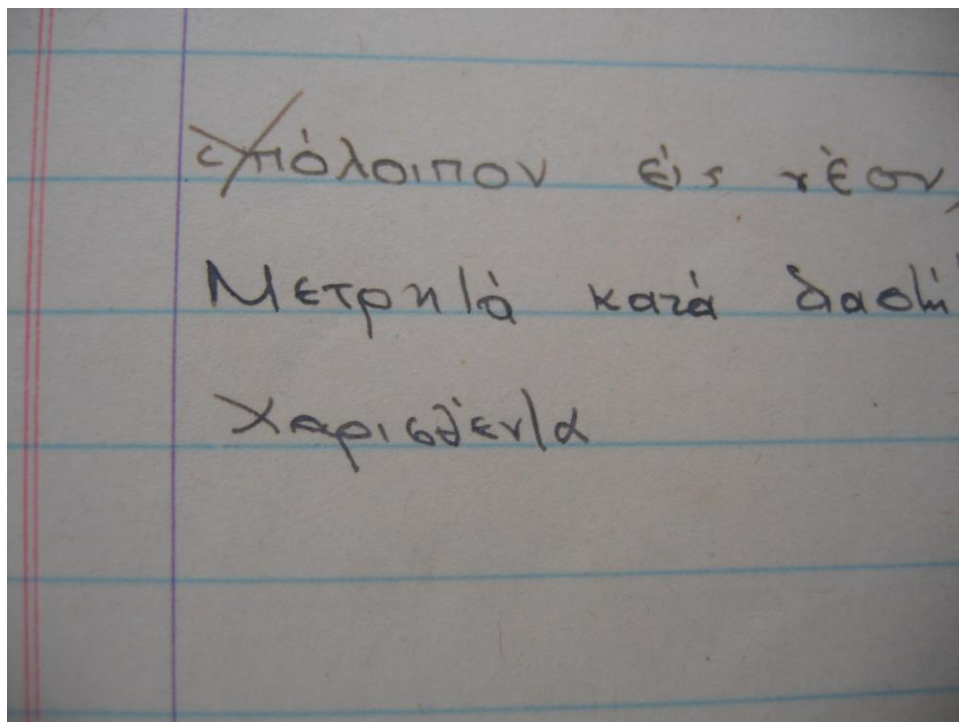 Ὑπόλοιπον εἰς νέον
Μετρητὰ κατὰ
Χαρισθέντα